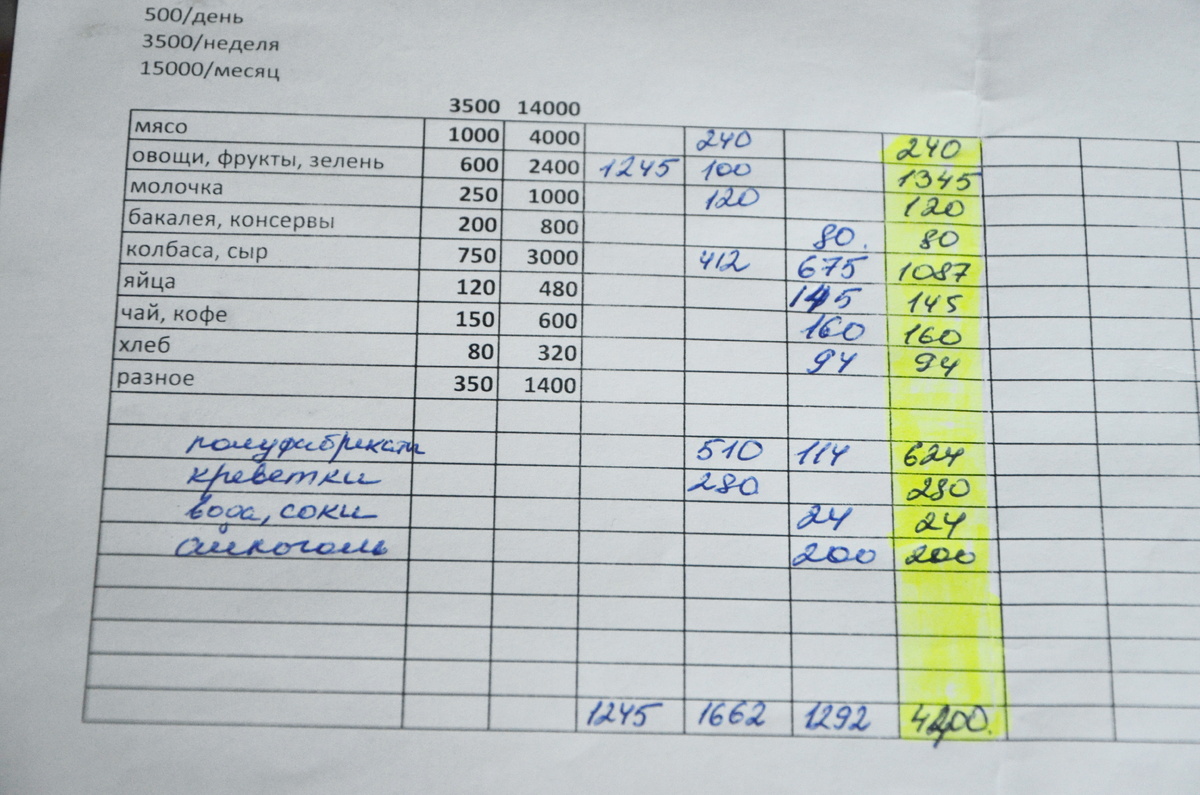 500/день
3500/неделя
15000/месяц
3500 14000
мясо 1000 4000 240 240
овощи, фрукты, зелень 600 2400 1245 100 1345
молочка 250 1000 120 120
бакалея, консервы 200 800 80. 80
колбаса, сыр 750 3000 412 675 1087
яйца 120 480 145 145
чай, кофе 150 600 160 160
хлеб 80 320 94 94
разное 350 1400
полуфабрикаты 510 114 624
креветки 280 280
вода, соки 24 24
алкоголь 200 200
1245 1662 1292 4200.